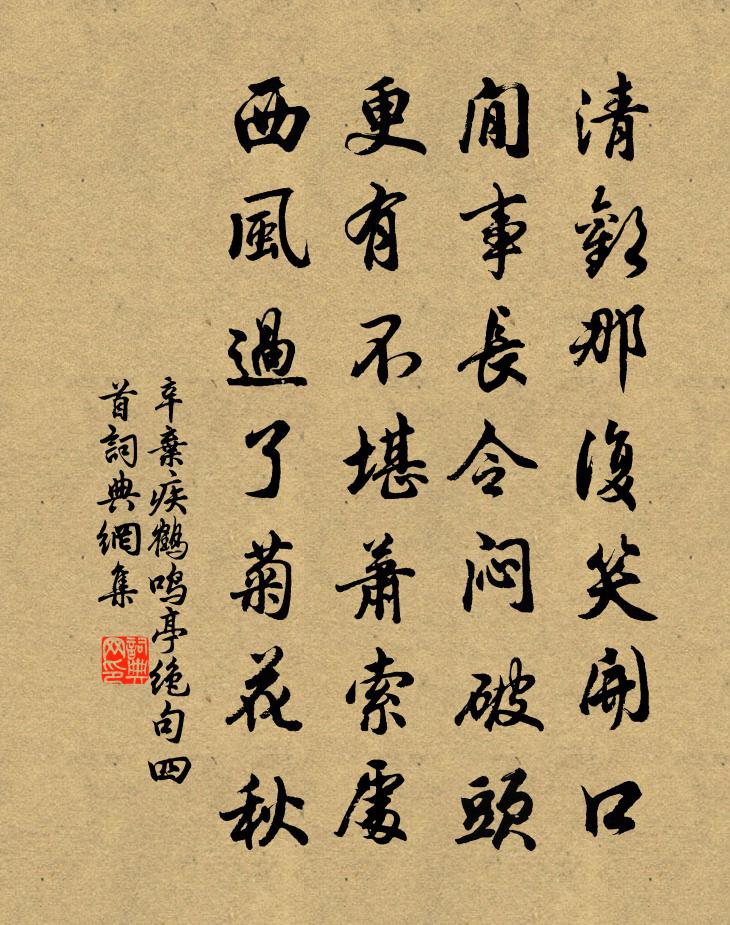 清歡那復笑開口
閒事長令悶破頭
更有不堪蕭索處
西風過了菊花秋
辛棄疾鶴鳴亭絶句四
首詞典網集
詞典
网印